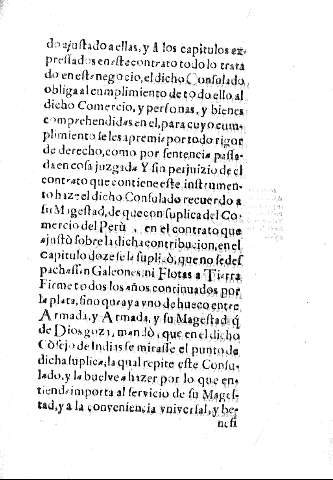 do ajustado a ellas, y á los capitulos ex-
pressados en este contrato todo lo trata
do en este negocio, el dicho Consulado,
obliga al cumplimiento de todo ello al
dicho Comercio, y personas, y bienes
comprehendidas en el, para cuyo cum-
plimiento se les apremie por todo rigor
de derecho, como por sentencia passa-
da en cosa juzgada Y sin perjuizio de el
contrato que contiene este instrumen-
to haze el dicho Consulado recuerdo a
su Magestad, de que con suplica del Co-
mercio del Perù, en el contrato que
ajustò sobre la dicha contribucion, en el
capitulo doze se la suplicò, que no se des
pachassin Galeones, ni Flotas a Tierra
Firme todos los años, continuados por
la plata, sino que aya vno de hueco entre
Armada, y Armada, y su Magestad q̃
de Dios goza, mandò, que en el dicho
Cõsejo de Indias se mirasse el punto de
dicha suplica, la qual repite este Consu-
lado, y la buelve a hazer por lo que en-
tiende importa al servicio de su Mages-
tad, y a la conveniencia vniversal, y be-
nefi